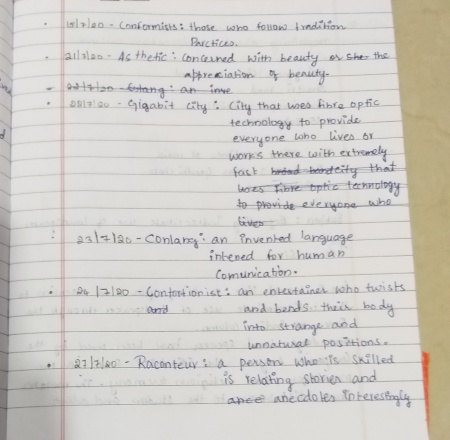 15/7/20 - Conformists: those who follow tradition
Parctices.
21/7/20 - As thetic: concerned with beauty or she the
appreciation of beauty.
22/7/20 - Colang: an inve
22/7/20 - Gigabit city: City that uses fibre optic
technology to provide
everyone who lives or
works there with extremely
fast broad band city that
uses fibre optic technology
to provide everyone who
lives
23/7/20 - Conlang: an invented language
intened for human
Comunication.
24/7/20 - Contortionist: an entertainer who twists
and and bends their body
into strange and
unnatural positions.
27/7/20 - Raconteur: a person who is skilled
is relating stories and
anecdotes interestingly